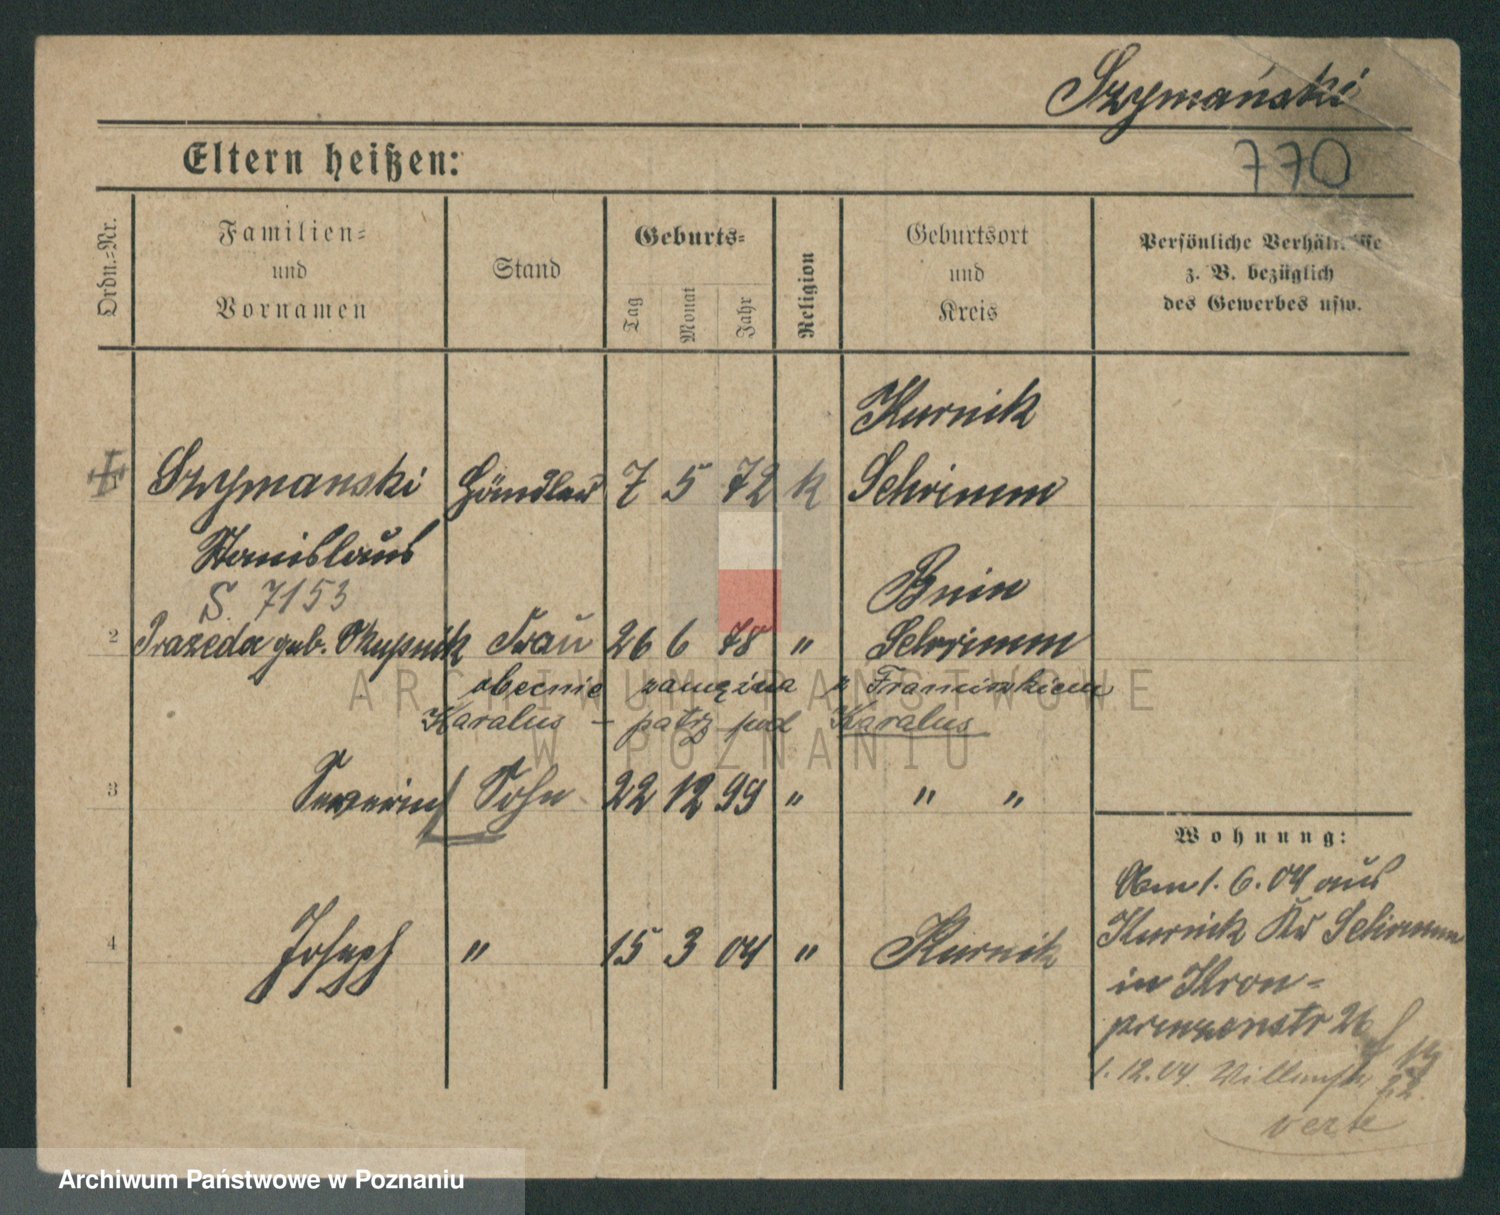 Szymański
770
Eltern heißen:
Ordn.-Nr.
Familien-
und
Vornamen
Stand
Geburts-
Tag
Monat
Jahr
Religion
Geburtsort
und
Kreis
Persönliche Verhältnisse
z. B. bezüglich
des Gewerbes usw.
Kurnik
Szymanski Händler 7 5 72 k Schrimm
Stanislaus
S. 7153
Bnin
2 Prazeda geb. Skupnik Frau 26 6 78 " Schrimm
obecnie zamężna z Franciszkiem
Karalus – patrz pod Karalus
3 Severin Sohn 22 12 99 " " "
Wohnung:
Am 1. 6. 04 aus
4 Joseph " 15 3 04 " Kurnik
Kurnick Kr Schrimm
in Kron-
prinzenstr 26
1. 12. 04
verte
ARCHIWUM PAŃSTWOWE
W POZNANIU
Archiwum Państwowe w Poznaniu